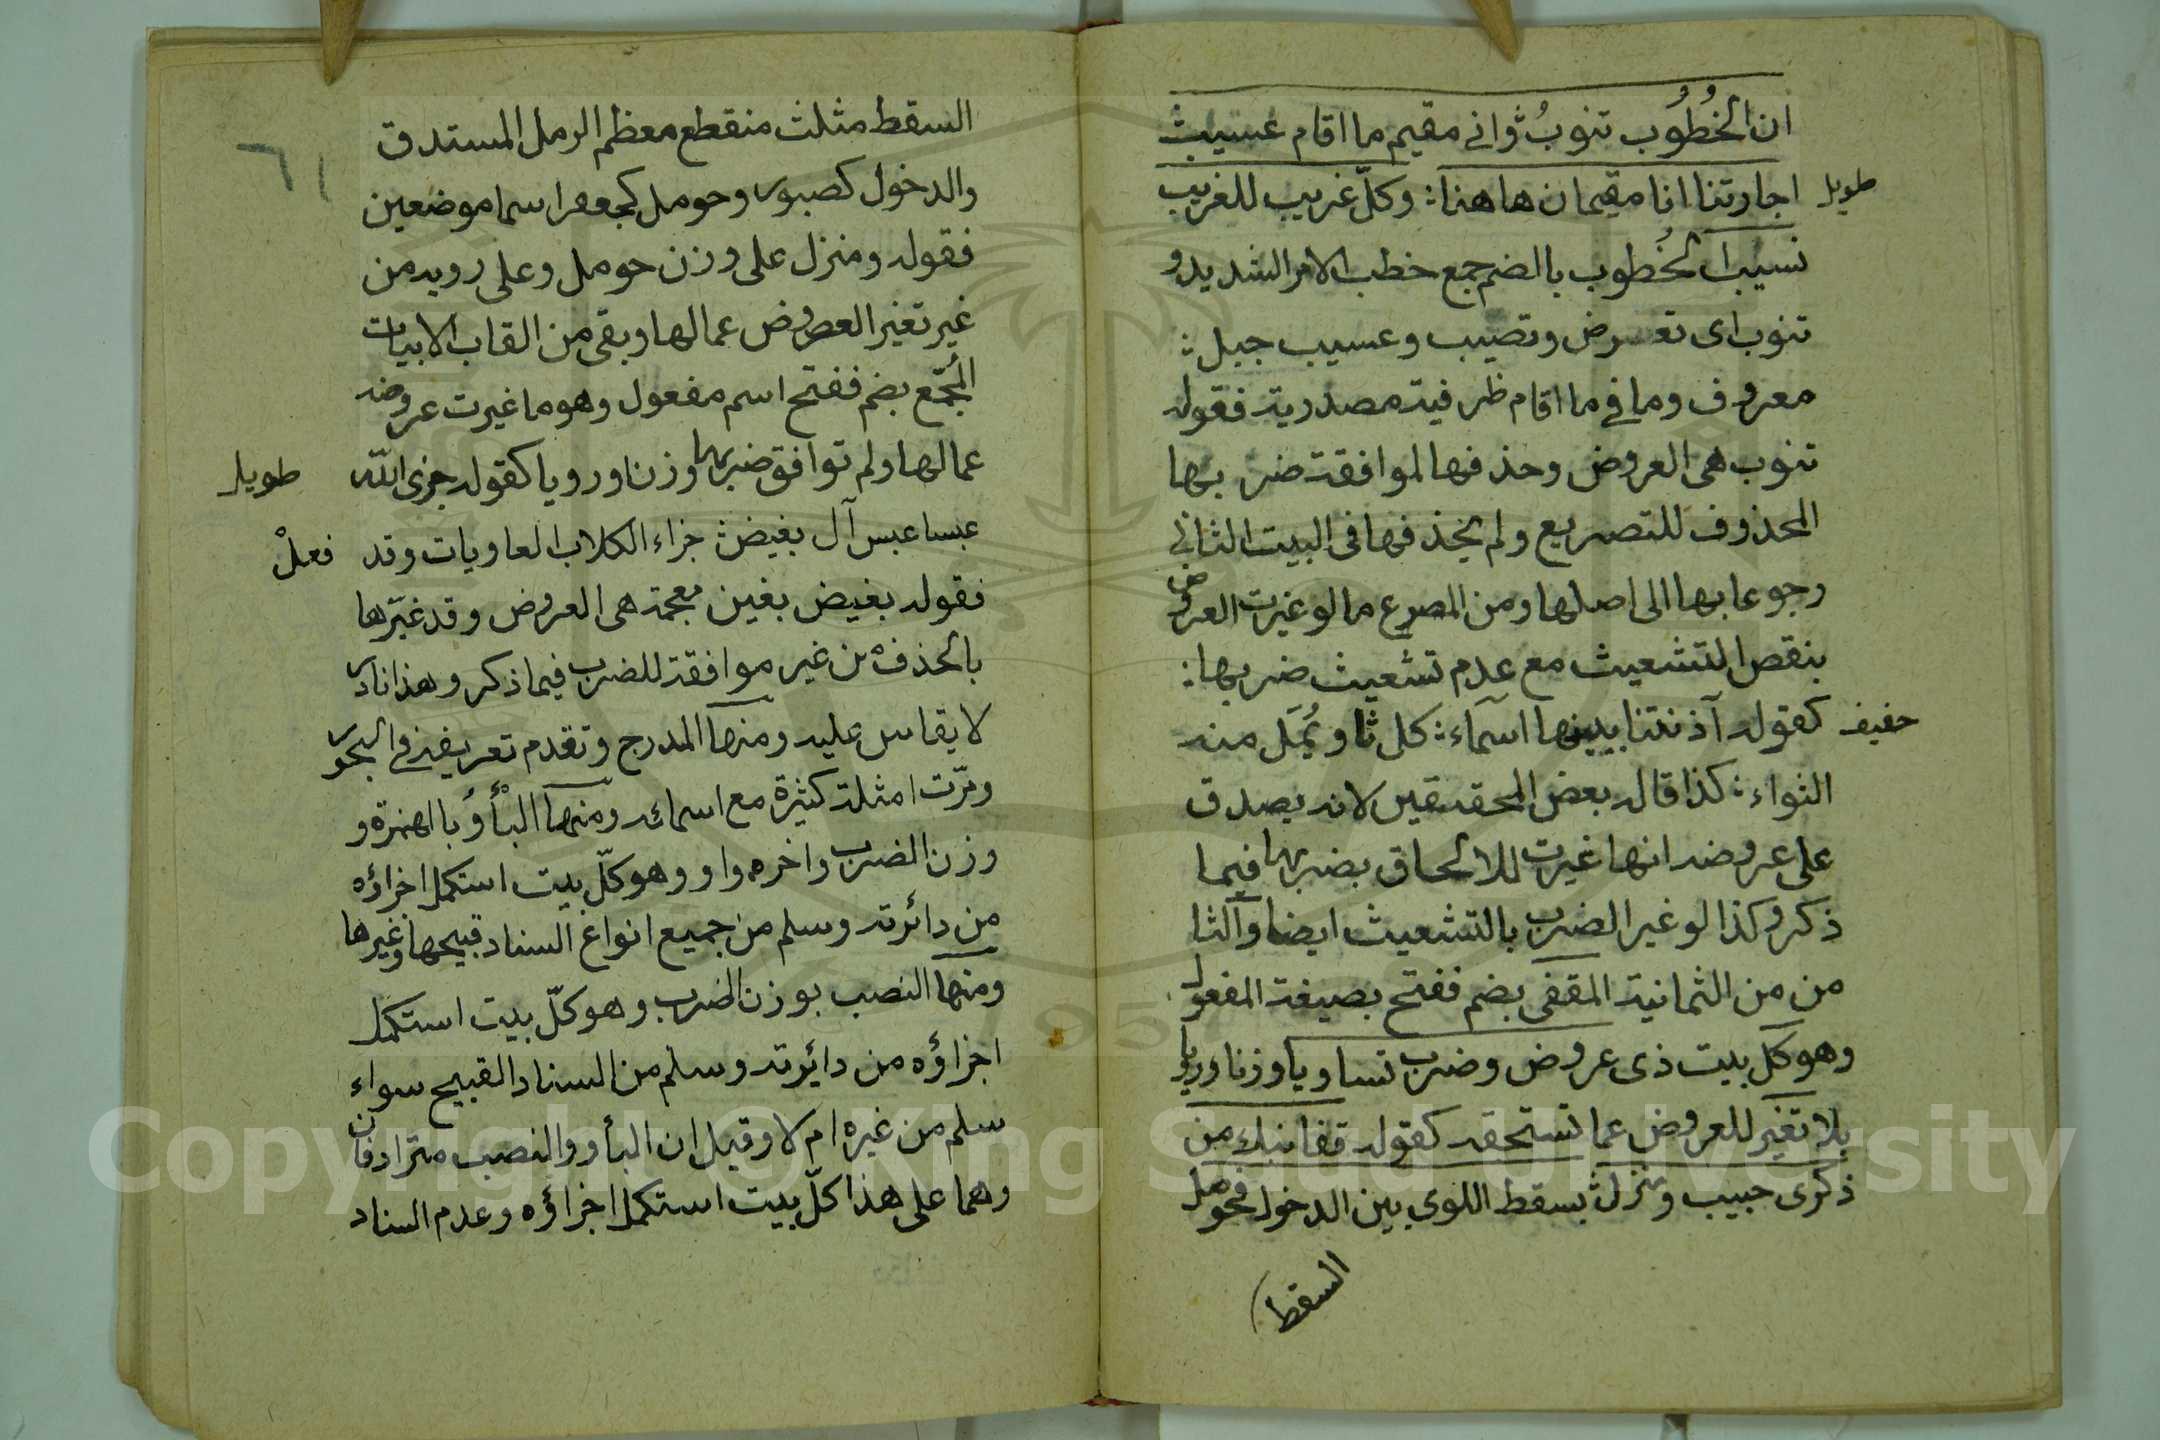 ان الخُطُوُب تنوبُ وانى مقيم ما اقام عسيب
طويل
اجارتنا انا مقيمان هاهنا: وكلّ غريب للغريب
نسيب الخُطوب بالضم جمع خطب الامر الشديد و
تنوب اى تعرض وتصيب وعسيب جبل:
معروف وما فى ما اقام ظرفية مصدرية فقوله
تنوب هى العروض وحذفها لموافقة ضربها
المحذوف للتصريع ولم يحذفها فى البيت الثانى
رجوعا بها الى اصلها ومن المصرع ما لو غيرت العروض
بنقص التشعيث مع عدم تشعيث ضربها:
خفيف
كقوله آذنتنا ببينها اسماء: كل ثاو يُمَل منه
الثواء: كذا قاله بعض المحققين لانه يصدق
على عروضه انها غيرت للالحاق بضربها فيما
ذكر وكذا لو غير الضرب بالتشعيث ايضا والثا
من من الثمانية المقفى بضم ففتح بصيغة المفعول
وهو كل بيت ذى عروض وضرب تساويا وزنا ورويا
بلا تغير للعروض عما تستحقه كقوله قفا نبك من
ذكرى حبيب ومنزل: بسقط اللوى بين الدخول فحومل
السقط
٦١
السقط مثلث منقطع معظم الرمل المستدق
والدخول كصبور وحومل كجعفر اسما موضعين
فقوله ومنزل على وزن حومل وعلى رويه من
غير تغير العروض عما لها وبقى من القاب الابيات
المُجمّع بضم ففتح اسم مفعول وهو ما غيرت عروضه
عما لها ولم توافق ضربها وزنا ورويا كقوله جزى اللّه
طويل
عبسا عبس آل بغيض: جزاء الكلاب العاويات وقد
فعلْ
فقوله بغيض بغين معجمة هى العروض وقد غيّرها
بالحذف من غير موافقة للضرب فيما ذكر وهذا نادر
لا يقاس عليه ومنها المدرج وتقدم تعريفه فى البحور
ومرّت امثلة كثيرة مع اسمائه ومنها البأوُ بالهمزة و
وزن الضرب واخره واو وهو كلّ بيت استكمل اجزاؤه
من دائرته وسلم من جميع انواع السناد قبيحها وغيرها
ومنها النصب بوزن الضرب وهو كلّ بيت استكمل
اجزاؤه من دائرته وسلم من السناد القبيح سواء
سلم من غيره ام لا وقيل ان البأو والنصب مترادفان
وهما على هذا كلّ بيت استكمل اجزاؤه وعدم السناد
Copyright © King Saud University
1957